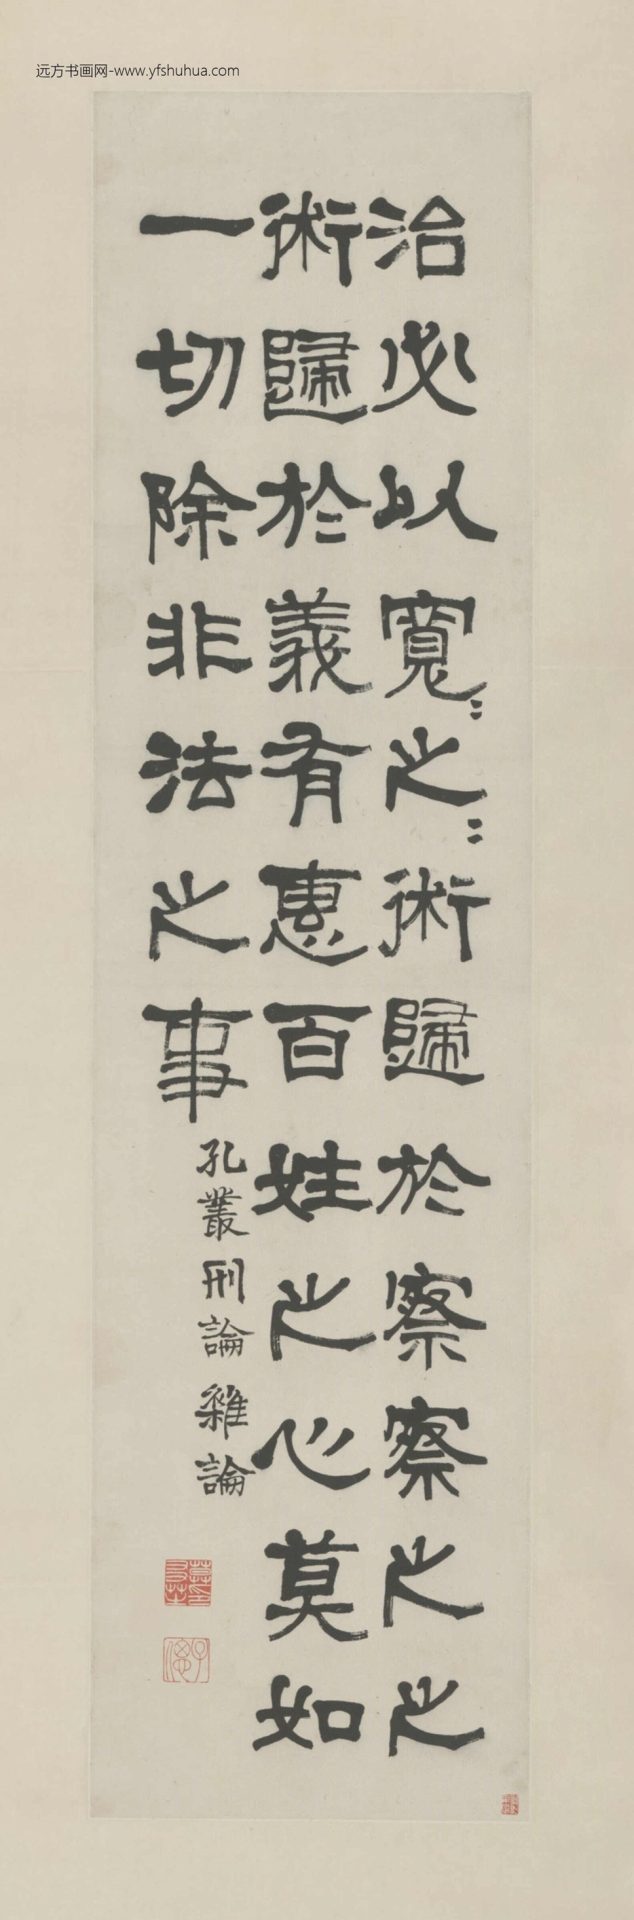 远方书画网-www.yfshuhua.com
治必以寬〻之〻術歸於察察之之
術歸於義有惠百姓之心莫如
一切除非法之事
孔叢刑論雜論